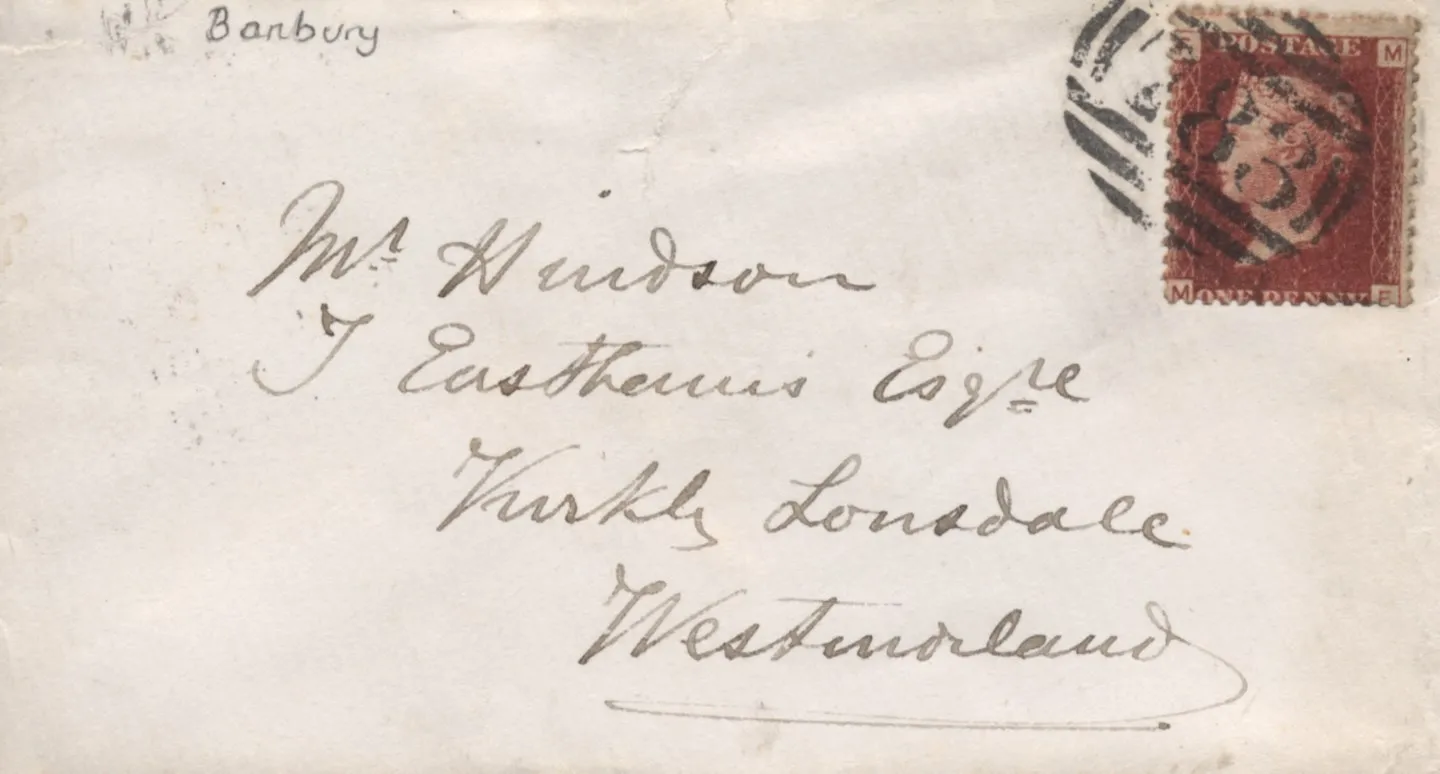 Banbury
POSTAGE M
38
M ONE PENNY E
Mr Hindson
T Easthams Esqre
Kirkby Lonsdale
Westmorland